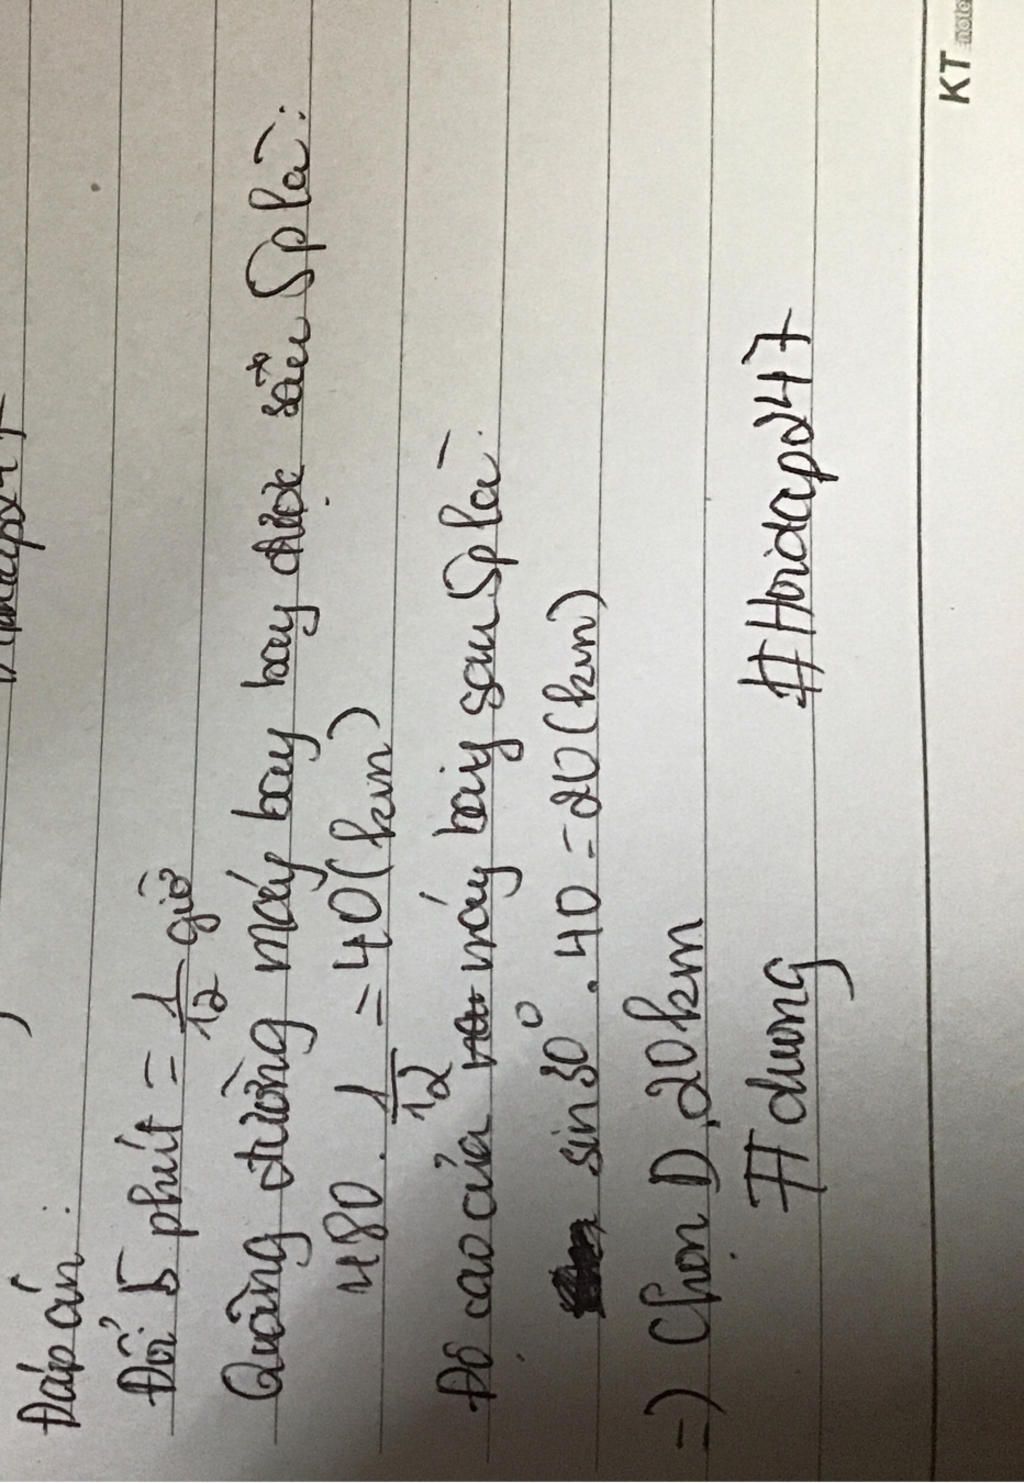 Đáp án:
Đổi 5 phút = 1/12 giờ
Quãng đường máy bay bay được sau 5p là:
480 . 1/12 = 40 (km)
Độ cao của máy bay sau 5p là:
sin 30° . 40 = 20 (km)
=) Chọn D. 20 km
# duong #Hoidap247
KT